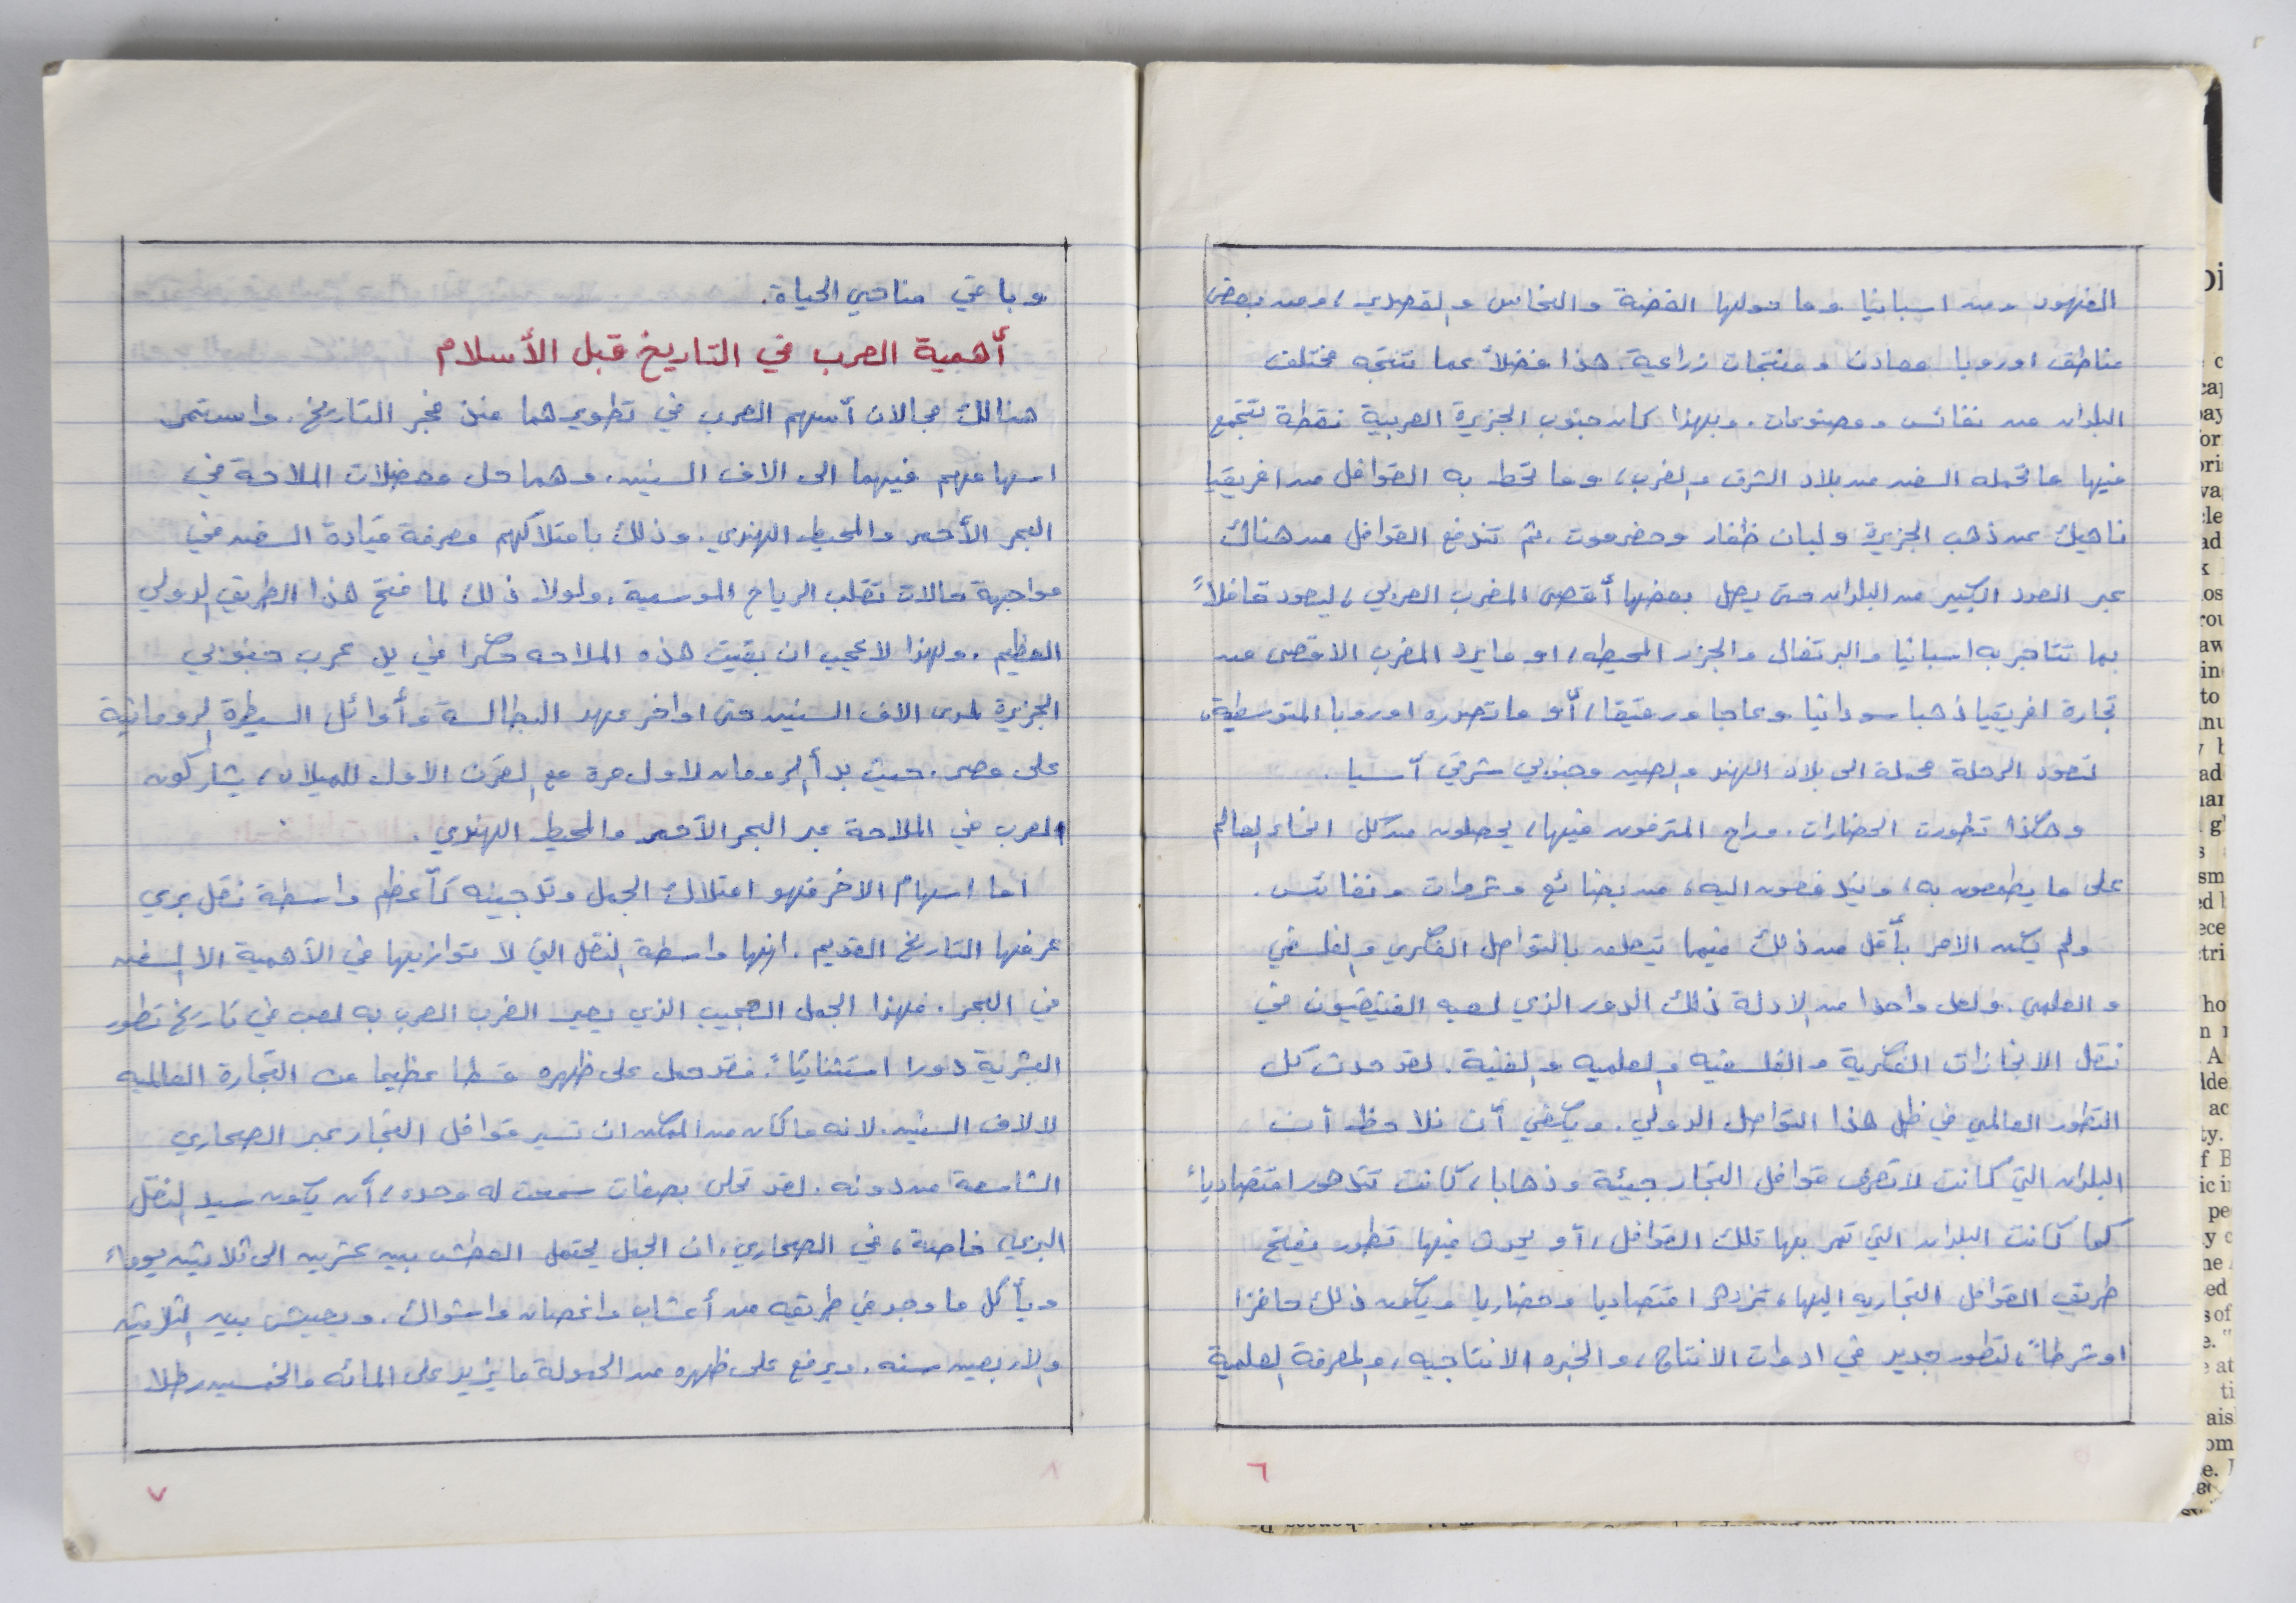 الفهود ومن اسبانيا وما حولها الفضة والنحاس والقصدير، ومن بعض
مناطق اوروبا معادن ومنتجات زراعية. هذا فضلاً عما تنتجه مختلف
البلدان من نفائس ومصنوعات. وبهذا كان جنوب الجزيرة العربية نقطة تتجمع
فيها ما تحمله السفن من بلاد الشرق والغرب، وما تحط به القوافل من افريقيا
ناهيك عن ذهب الجزيرة ولبان ظفار وحضرموت. ثم تندفع القوافل من هناك
عبر العدد الكبير من البلدان حتى يصل بعضها أقصى المغرب العربي، ليعود قافلاً
بما تتاجر به اسبانيا والبرتغال والجزر المحيطه، او ما يرد المغرب الاقصى من
تجارة افريقيا ذهبا سودانيا وعاجا ورقيقا، أو ما تصدره اوروبا المتوسطية،
لتعود الرحلة محملة الى بلاد الهند والصين وجنوبي شرقي آسيا.
وهكذا تطورت الحضارات. وراح المترفون فيها، يحصلون من كل انحاء العالم
على ما يطمعون به، ويندفعون اليه، من بضائع وثروات ونفائس.
ولم يكن الامر بأقل من ذلك فيما يتعلق بالتواصل الفكري والفلسفي
والعلمي. ولعل واحدا من الادلة ذلك الدور الذي لعبه الفنيقيون في
نقل الانجازات الفكرية والفلسفيه والعلميه والفنية. لقد حدث كل
التطور العالمي في ظل هذا التواصل الدولي. ويكفي أن نلاحظ أن
البلدان التي كانت لا تعرف قوافل التجار جيئة وذهابا، كانت تتدهور اقتصادياً
كما كانت البلدان التي تمر بها تلك القوافل، أو يحدث فيها تطور يفتح
طريق القوافل التجاريه اليها، تزدهر اقتصاديا وحضاريا ويكون ذلك حافزا
او شرطاً، لتطور جديد في ادوات الانتاج، والخبره الانتاجيه، والمعرفة العلمية
٦
وباقي مناحي الحياة.
أهمية العرب في التاريخ قبل الأسلام
هنالك مجالان أسهم العرب في تطويرهما منذ فجر التاريخ. واستمر
اسهامهم فيهما الى الاف السنين. وهما حل معضلات الملاحة في
البحر الأحمر والمحيط الهندي. وذلك بامتلاكهم معرفة قيادة السفن في
مواجهة حالات تقلب الرياح الموسمية. ولولا ذلك لما فتح هذا الطريق الدولي
العظيم. ولهذا لا عجب ان بقيت هذه الملاحه حكرا في يد عرب جنوبي
الجزيرة لمدى الاف السنين حتى اواخر عهد البطالسة وأوائل السيطرة الرومانية
على مصر. حيث بدأ الرومان لاول مرة مع القرن الاول للميلاد، يشاركون
العرب في الملاحة عبر البحر الأحمر والمحيط الهندي.
اما اسهام الاخر فهو امتلاك الجمل وتدجينه كأعظم واسطة نقل بري
عرفها التاريخ القديم. انها واسطة النقل التي لا توازيها في الأهمية الا السفن
في البحر. فهذا الجمل العجيب الذي يعير الغرب العرب به لعب في تاريخ تطور
البشرية دورا استثنائياً. فقد حمل على ظهره قسطا عظيما من التجارة العالميه
لالاف السنين. لانه ما كان من الممكن ان تسير قوافل التجار عبر الصحاري
الشاسعة من دونه. لقد تحلى بصفات سمحت له وحده، أن يكون سيد النقل
البري، خاصة، في الصحاري. ان الجمل يحتمل العطش بين عشرين الى ثلاثين يوماً
ويأكل ما وجد في طريقه من أعشاب واغصان واشواك. ويعيش بين الثلاثين
والاربعين سنه. ويرفع على ظهره من الحمولة ما يزيد على المائه والخمسين رطلا
٧